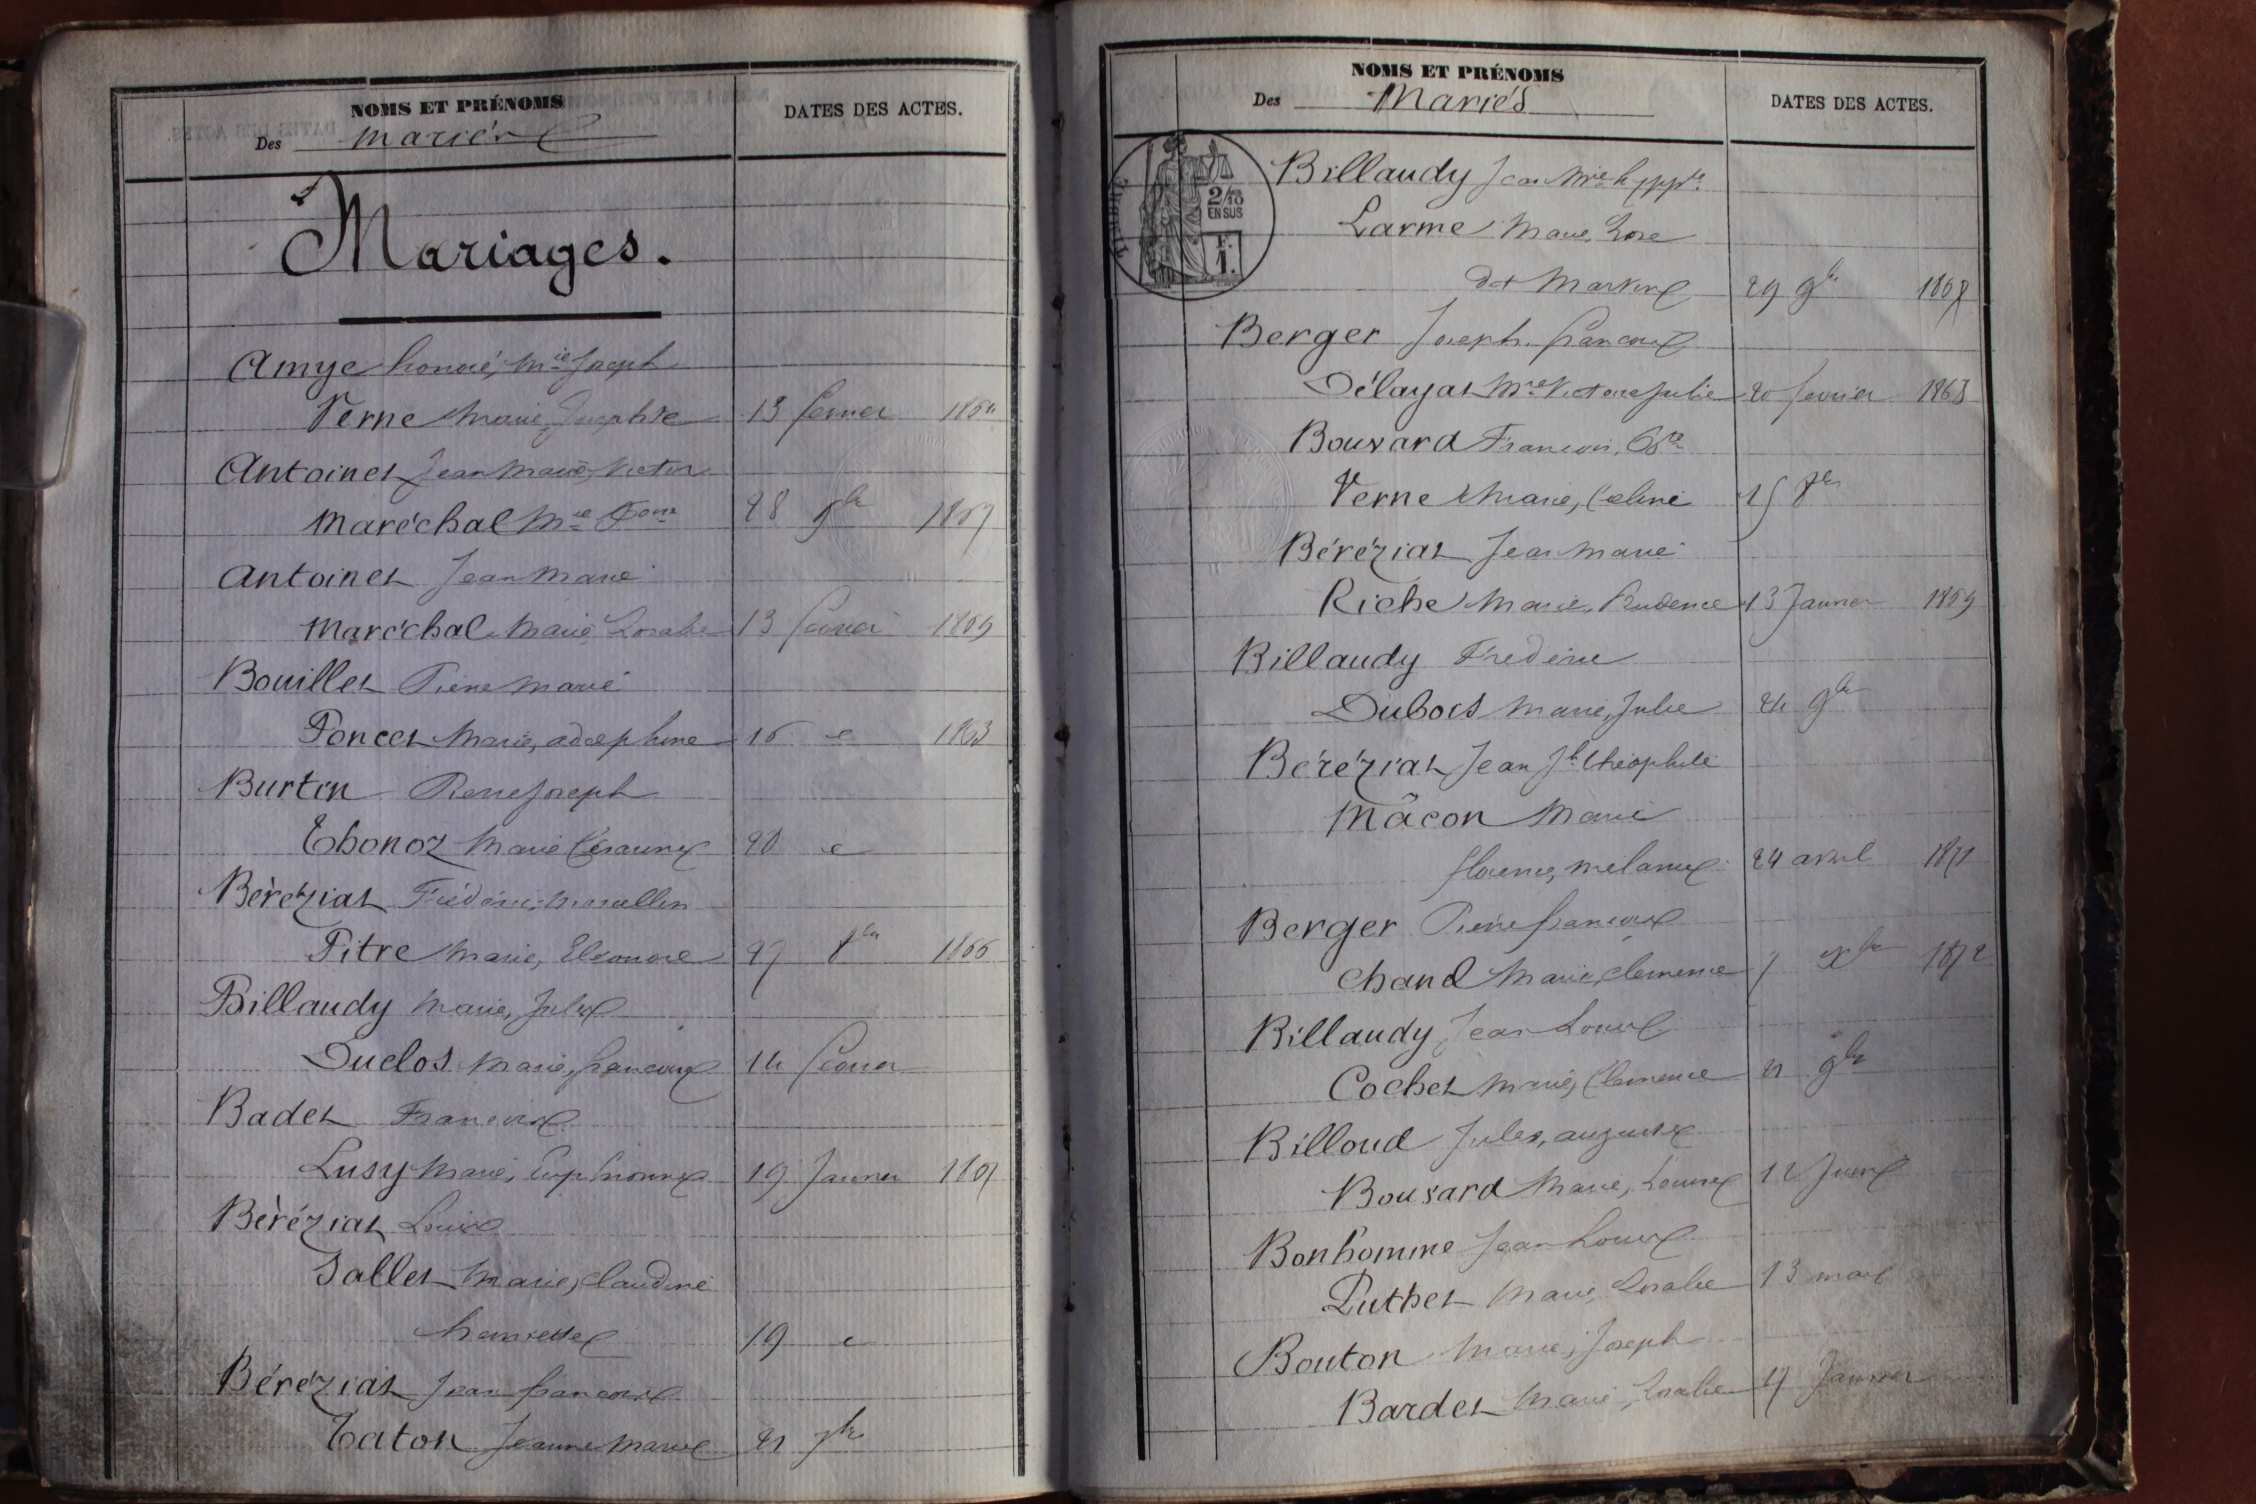 NOMS ET PRÉNOMS
Des Mariés
DATES DES ACTES.
Mariages.
Amye honoré, Mie Joseph
Verne Marie, Josephte 13 fevrier
Antoinet Jean Marie, Victor
Maréchal Mie 28 9bre
Antoinet Jean Marie
Maréchal Marie Rosalie 13 fevrier
Bouillet Pierre Marie
Poncet Marie, adelphine 16 1863
Burtin Pierre Joseph
Thonoz Marie 20
Béréziat Frédéric, Marcellin
Pitre Marie, Eléonore 27 1866
Billaudy Marie, Jules
Duclos Marie, françoise 14 fevrier
Badet François
Lusy Marie, Euphrosine 19 Janvier
Béréziat Louis
Sallet Marie, Claudine
henriette 19
Béréziat Jean françois
Taton Jeanne Marie 21
NOMS ET PRÉNOMS
Des Mariés
DATES DES ACTES.
2/10
EN SUS
F.
1.
Billaudy Jean Mie hyppte
Larme Marie, Rose
dt Martin 29 9bre
Berger Joseph françois
Délayat Mie Victoire Julie 20 fevrier 1868
Bouvard François,
Verne Marie, Céline 15
Béréziat Jean Marie
Riche Marie, Prudence 13 Janvier 1869
Billaudy Frédéric
Dubois Marie, Julie 24 9bre
Béréziat Jean Jh théophile
Mâcon Marie
florence, mélanie 24 avril
Berger Pierre françois
Chanel Marie, Clémence 7 Xbre 1872
Billaudy Jean Louis
Cochet Marie, Clémence 21 9bre
Billoud Jules, auguste
Bouvard Marie, Louise 12 Juin
Bonhomme Jean Louis
Puthet Marie, Rosalie 13 mars
Bouton Marie, Joseph
Bardet Marie, Rosalie Janvier